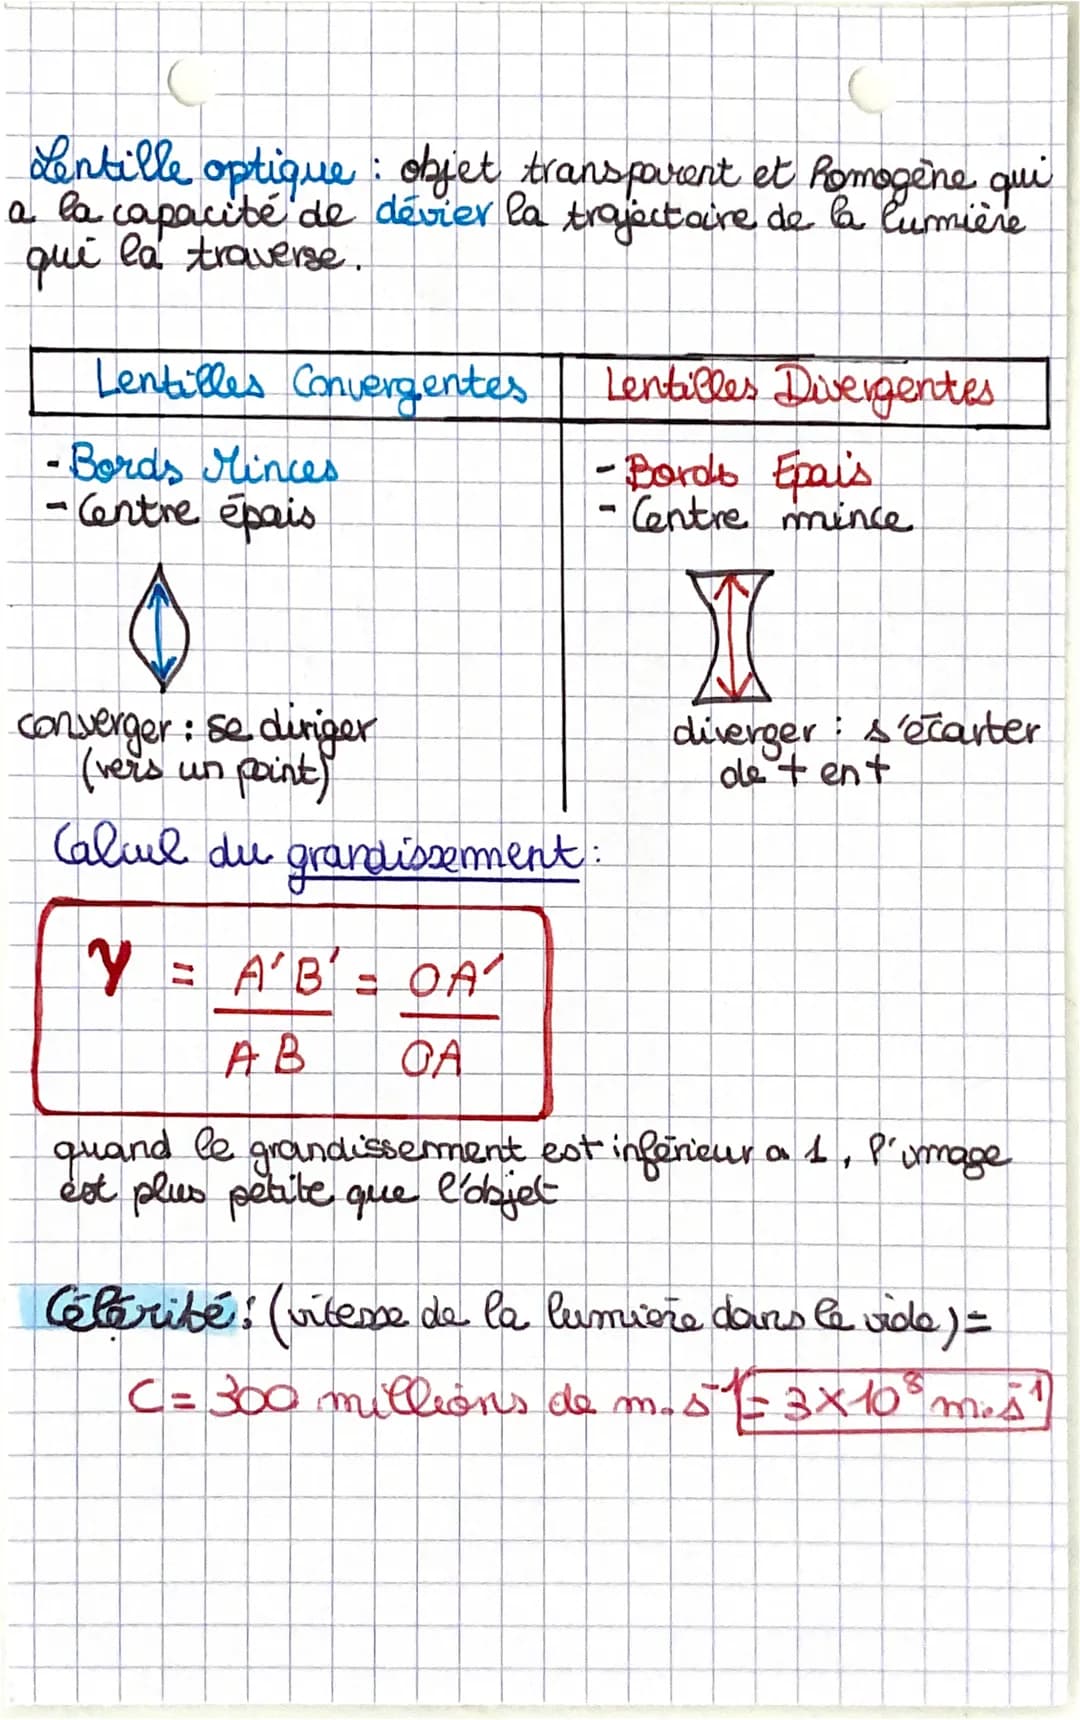 Lentille optique : objet transparent et homogène qui
a la capacité de dévier la trajectoire de la lumière
qui la traverse.
Lentilles Convergentes
Lentilles Divergentes
- Bords Minces
- Centre épais
- Bords Epais
- Centre mince
converger : se diriger
(vers un point)
diverger : s'écarter
de + en +
Calcul du grandissement :
γ = A'B' = OA'
AB OA
quand le grandissement est inférieur a 1, l'image
est plus petite que l'objet
Célérité : (vitesse de la lumière dans le vide) =
C = 300 millions de m.s⁻¹ = 3×10⁸ m.s⁻¹